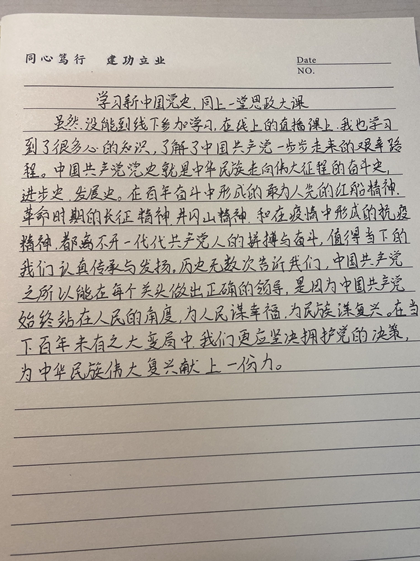 同心笃行 建功立业
Date
NO.
学习新中国党史,同上一堂思政大课
虽然没能到线下参加学习,在线上的直播课上,我也学习
到了很多心的知识,了解了中国共产党一步步走来的艰辛路
程。中国共产党党史就是中华民族走向伟大征程的奋斗史,
进步史,发展史。在百年奋斗中形成的敢为人先的红船精神,
革命时期的长征精神,井冈山精神,和在疫情中形成的抗疫
精神,都离不开一代代共产党人的拼搏与奋斗,值得当下的
我们认真传承与发扬,历史无数次告诉我们,中国共产党
之所以能在每个关头做出正确的领导,是因为中国共产党
始终站在人民的角度,为人民谋幸福,为民族谋复兴。在当
下百年未有之大变局中,我们更应坚决拥护党的决策,
为中华民族伟大复兴献上一份力。